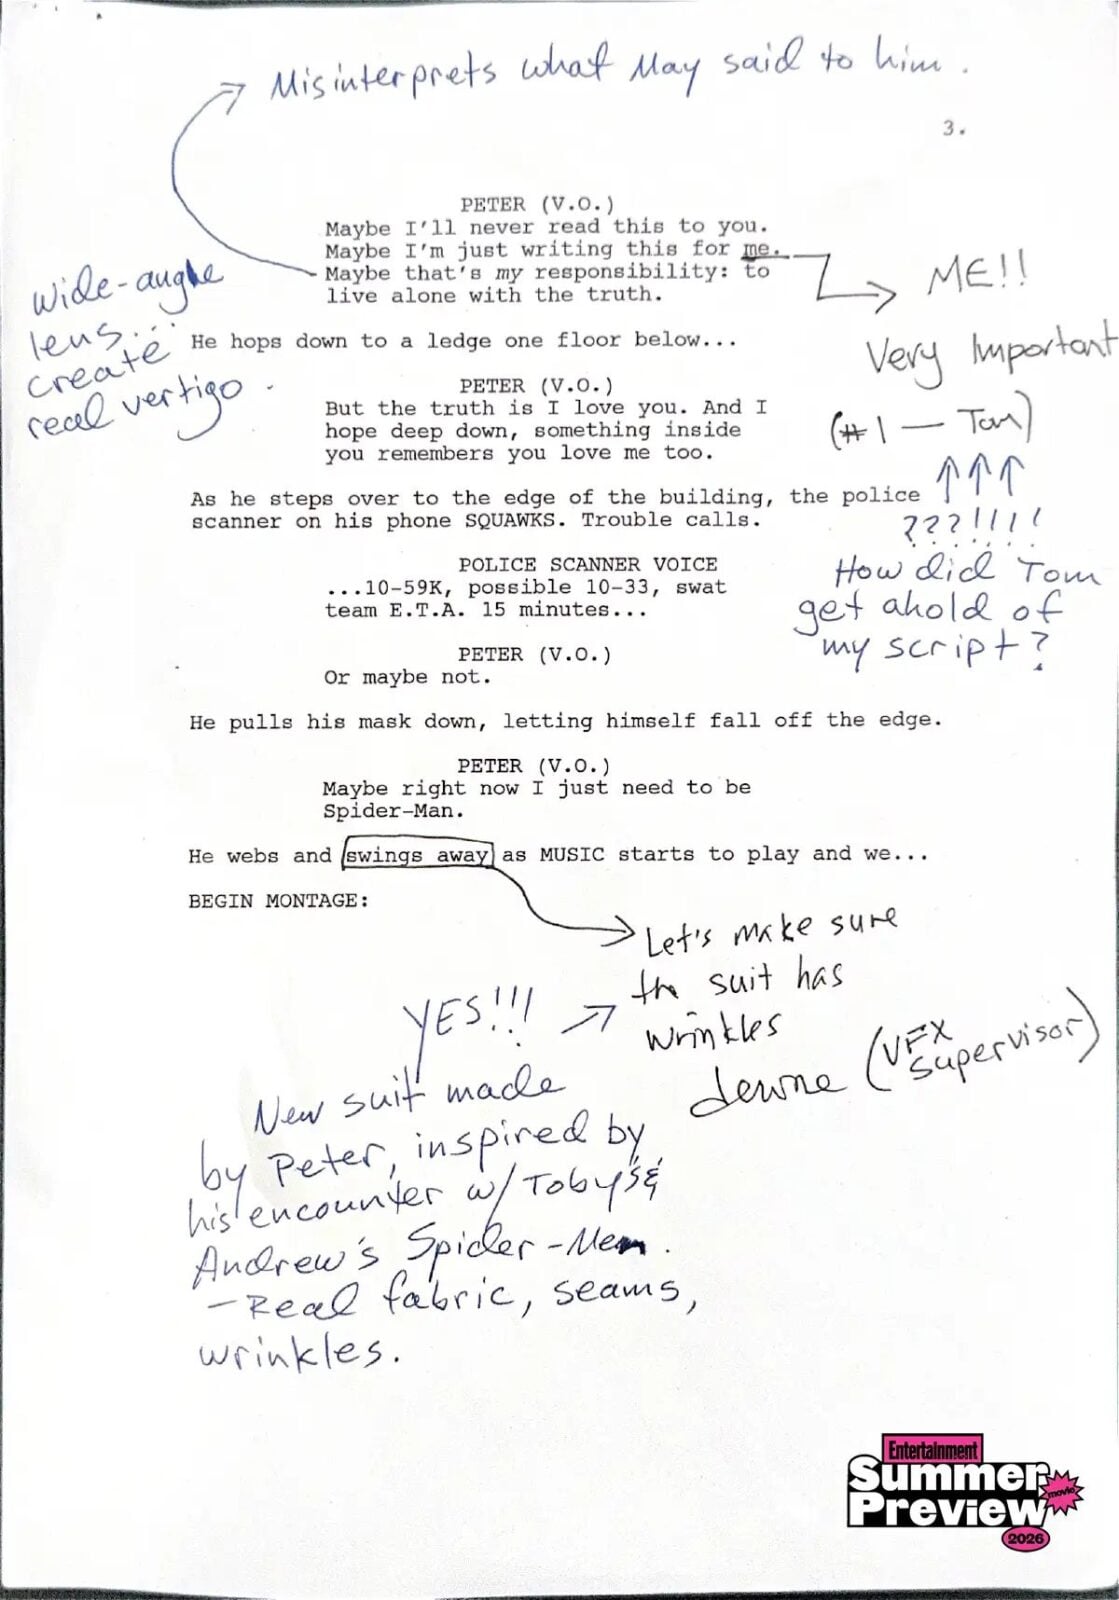 Misinterprets what May said to him.
3.
PETER (V.O.)
Maybe I'll never read this to you.
Maybe I'm just writing this for me.
Maybe that's my responsibility: to
live alone with the truth.
ME!!
Very Important
(#1 — Tom)
wide-angle
lens...
create
real vertigo.
He hops down to a ledge one floor below...
PETER (V.O.)
But the truth is I love you. And I
hope deep down, something inside
you remembers you love me too.
As he steps over to the edge of the building, the police
scanner on his phone SQUAWKS. Trouble calls.
???!!!!
How did Tom
get ahold of
my script?
POLICE SCANNER VOICE
...10-59K, possible 10-33, swat
team E.T.A. 15 minutes...
PETER (V.O.)
Or maybe not.
He pulls his mask down, letting himself fall off the edge.
PETER (V.O.)
Maybe right now I just need to be
Spider-Man.
He webs and swings away as MUSIC starts to play and we...
BEGIN MONTAGE:
Let's make sure
the suit has
wrinkles
(VFX
Supervisor)
YES!!!
New suit made
by Peter, inspired by
his encounter w/ Toby's &
Andrew's Spider-Men.
- Real fabric, seams,
wrinkles.
Entertainment
Summer
movie
Preview
2026